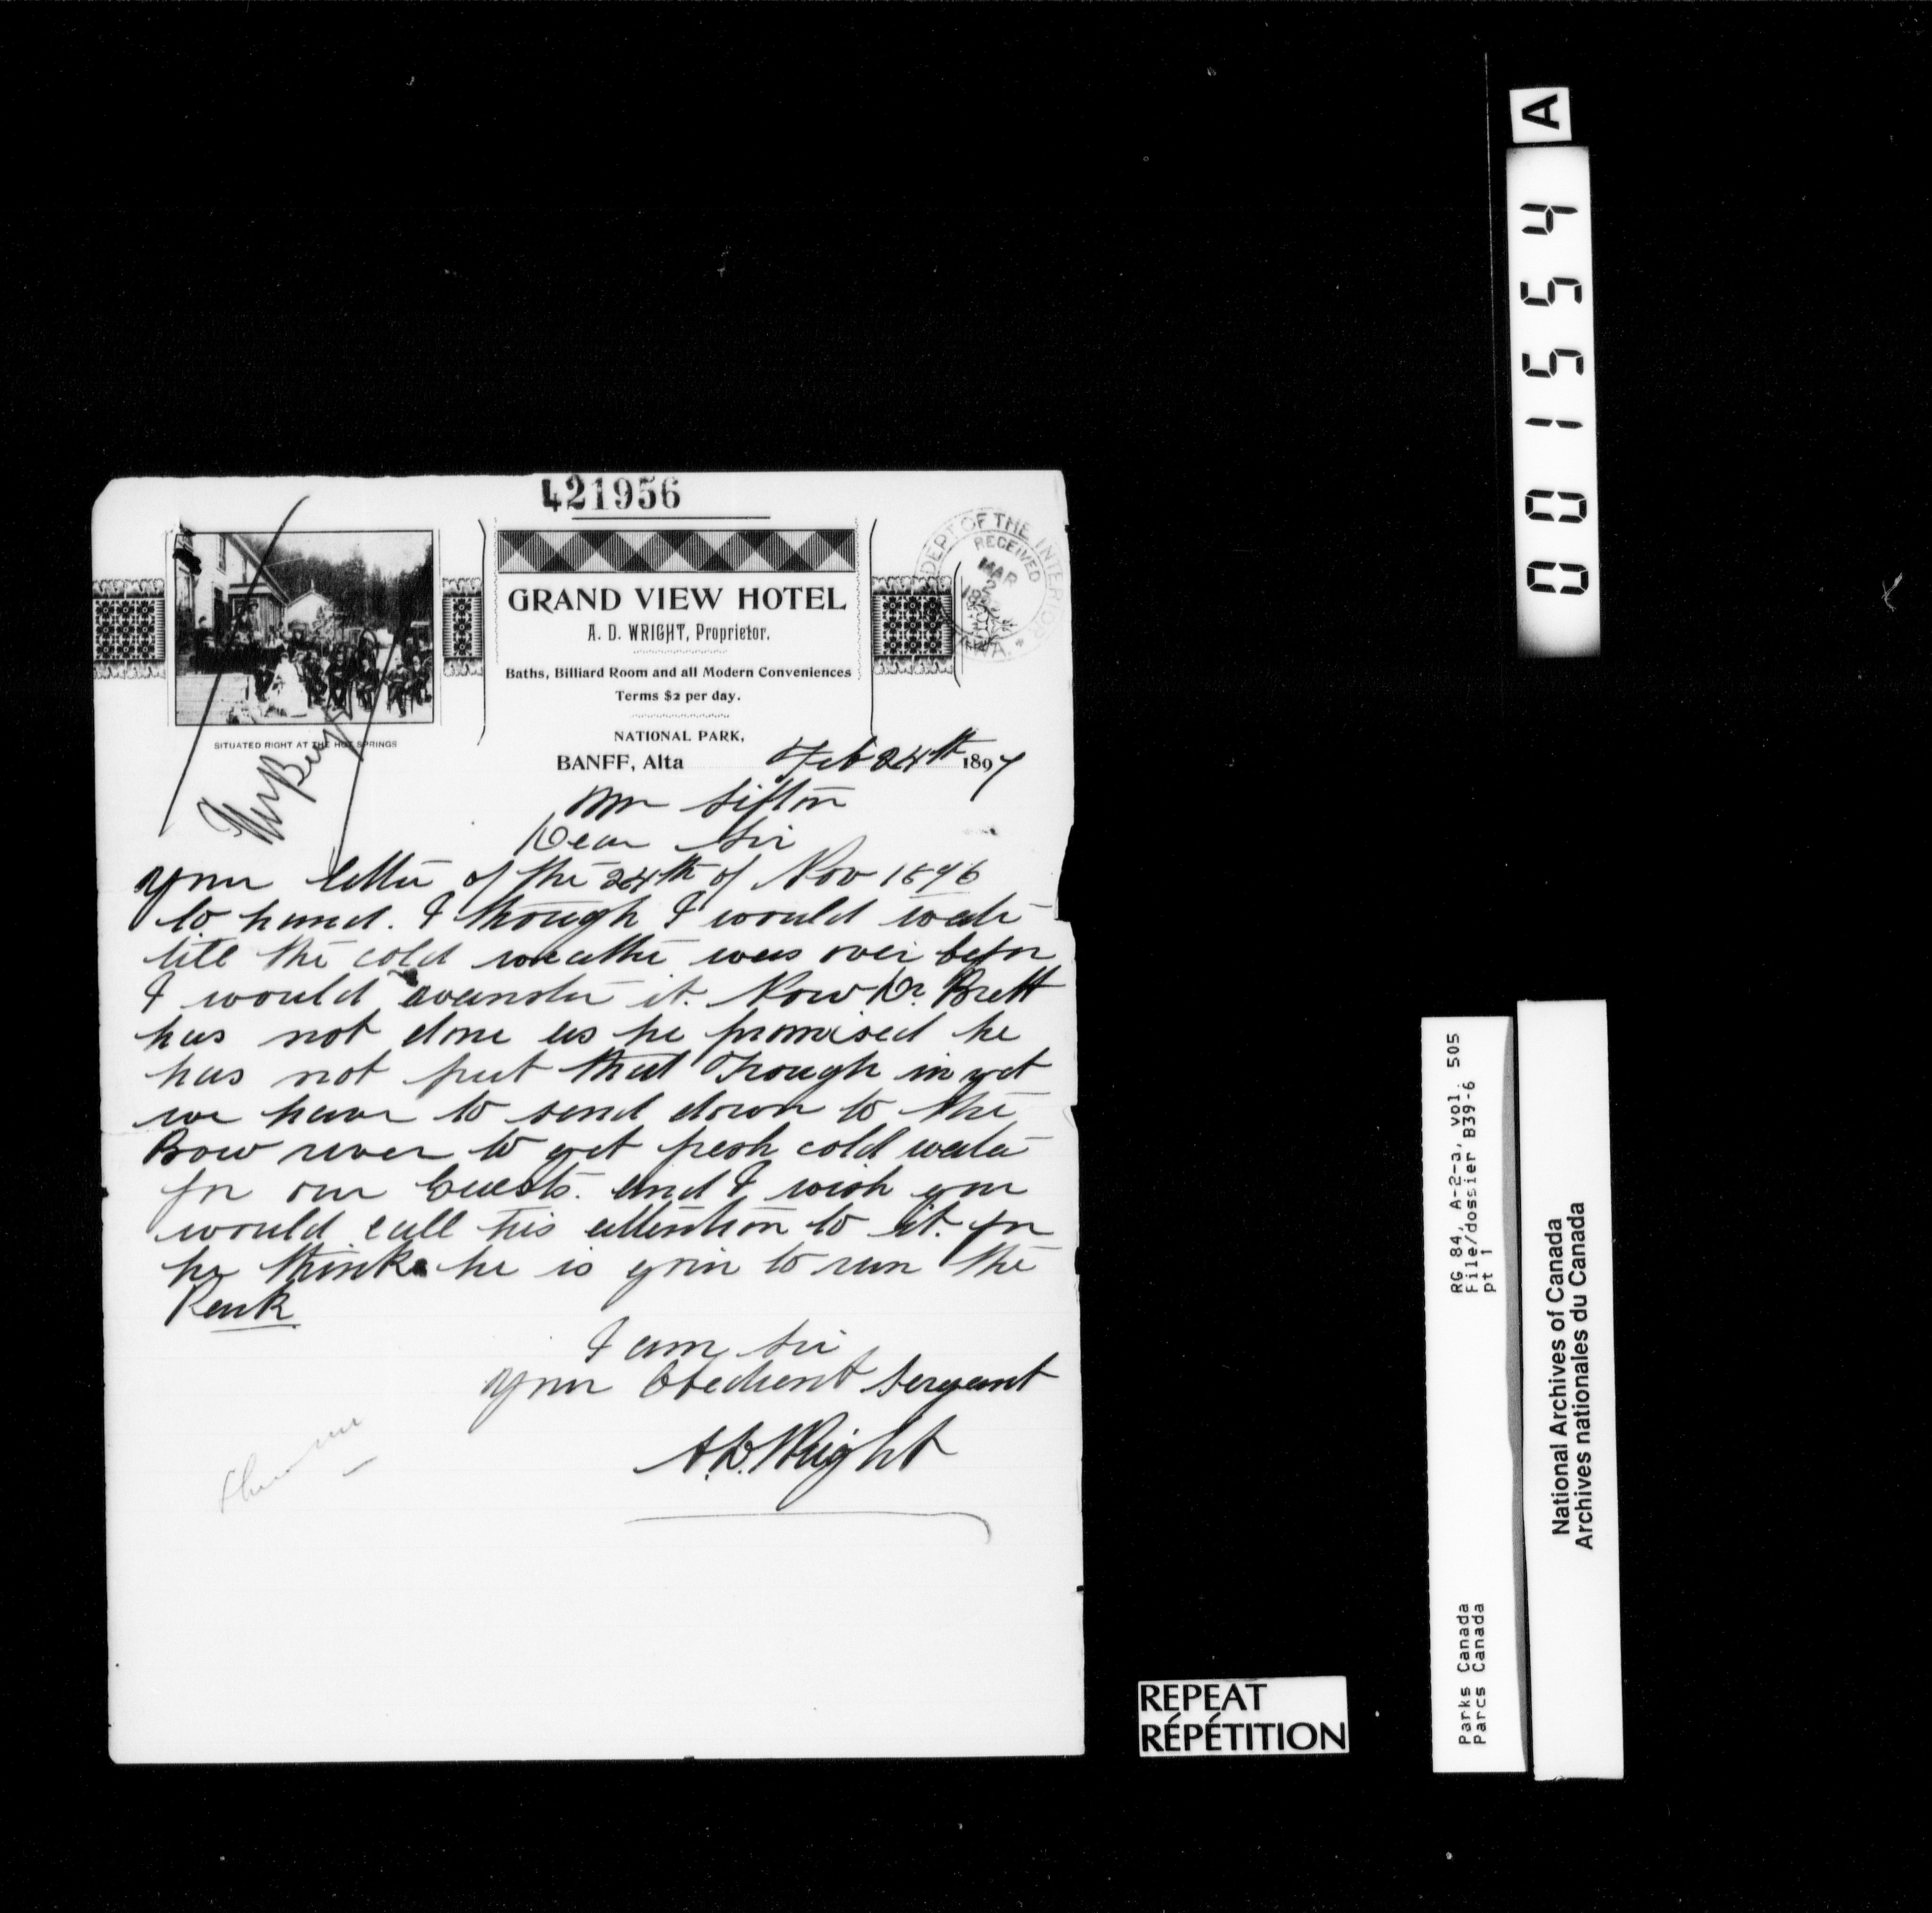 421956
DEPT OF THE INTERIOR
RECEIVED
MAR
GRAND VIEW HOTEL
A. D. WRIGHT, Proprietor.
Baths, Billiard Room and all Modern Conveniences
Terms $2 per day.
SITUATED RIGHT AT THE HOT SPRINGS
NATIONAL PARK,
BANFF, Alta Feb 24th 1897
Mr Sifton
Dear Sir
your letter of the 24th of Nov 1896
to hand. I though I would wate
till the cold weather was over befor
I would it. Now Dr. Brett
has not done as he promised he
has not put that Trough in yet
we have to send down to the
Bow river to get fresh cold water
for our Guests. and I wish you
would call his attention to it. for
he thinks he is goin to run the
Park
I am Sir
your Obedient Servant
A.D. Wright
REPEAT
RÉPÉTITION
001554 A
RG 84, A-2-a, vol. 505
File/dossier B39-6
pt 1
Parks Canada
Parcs Canada
National Archives of Canada
Archives nationales du Canada